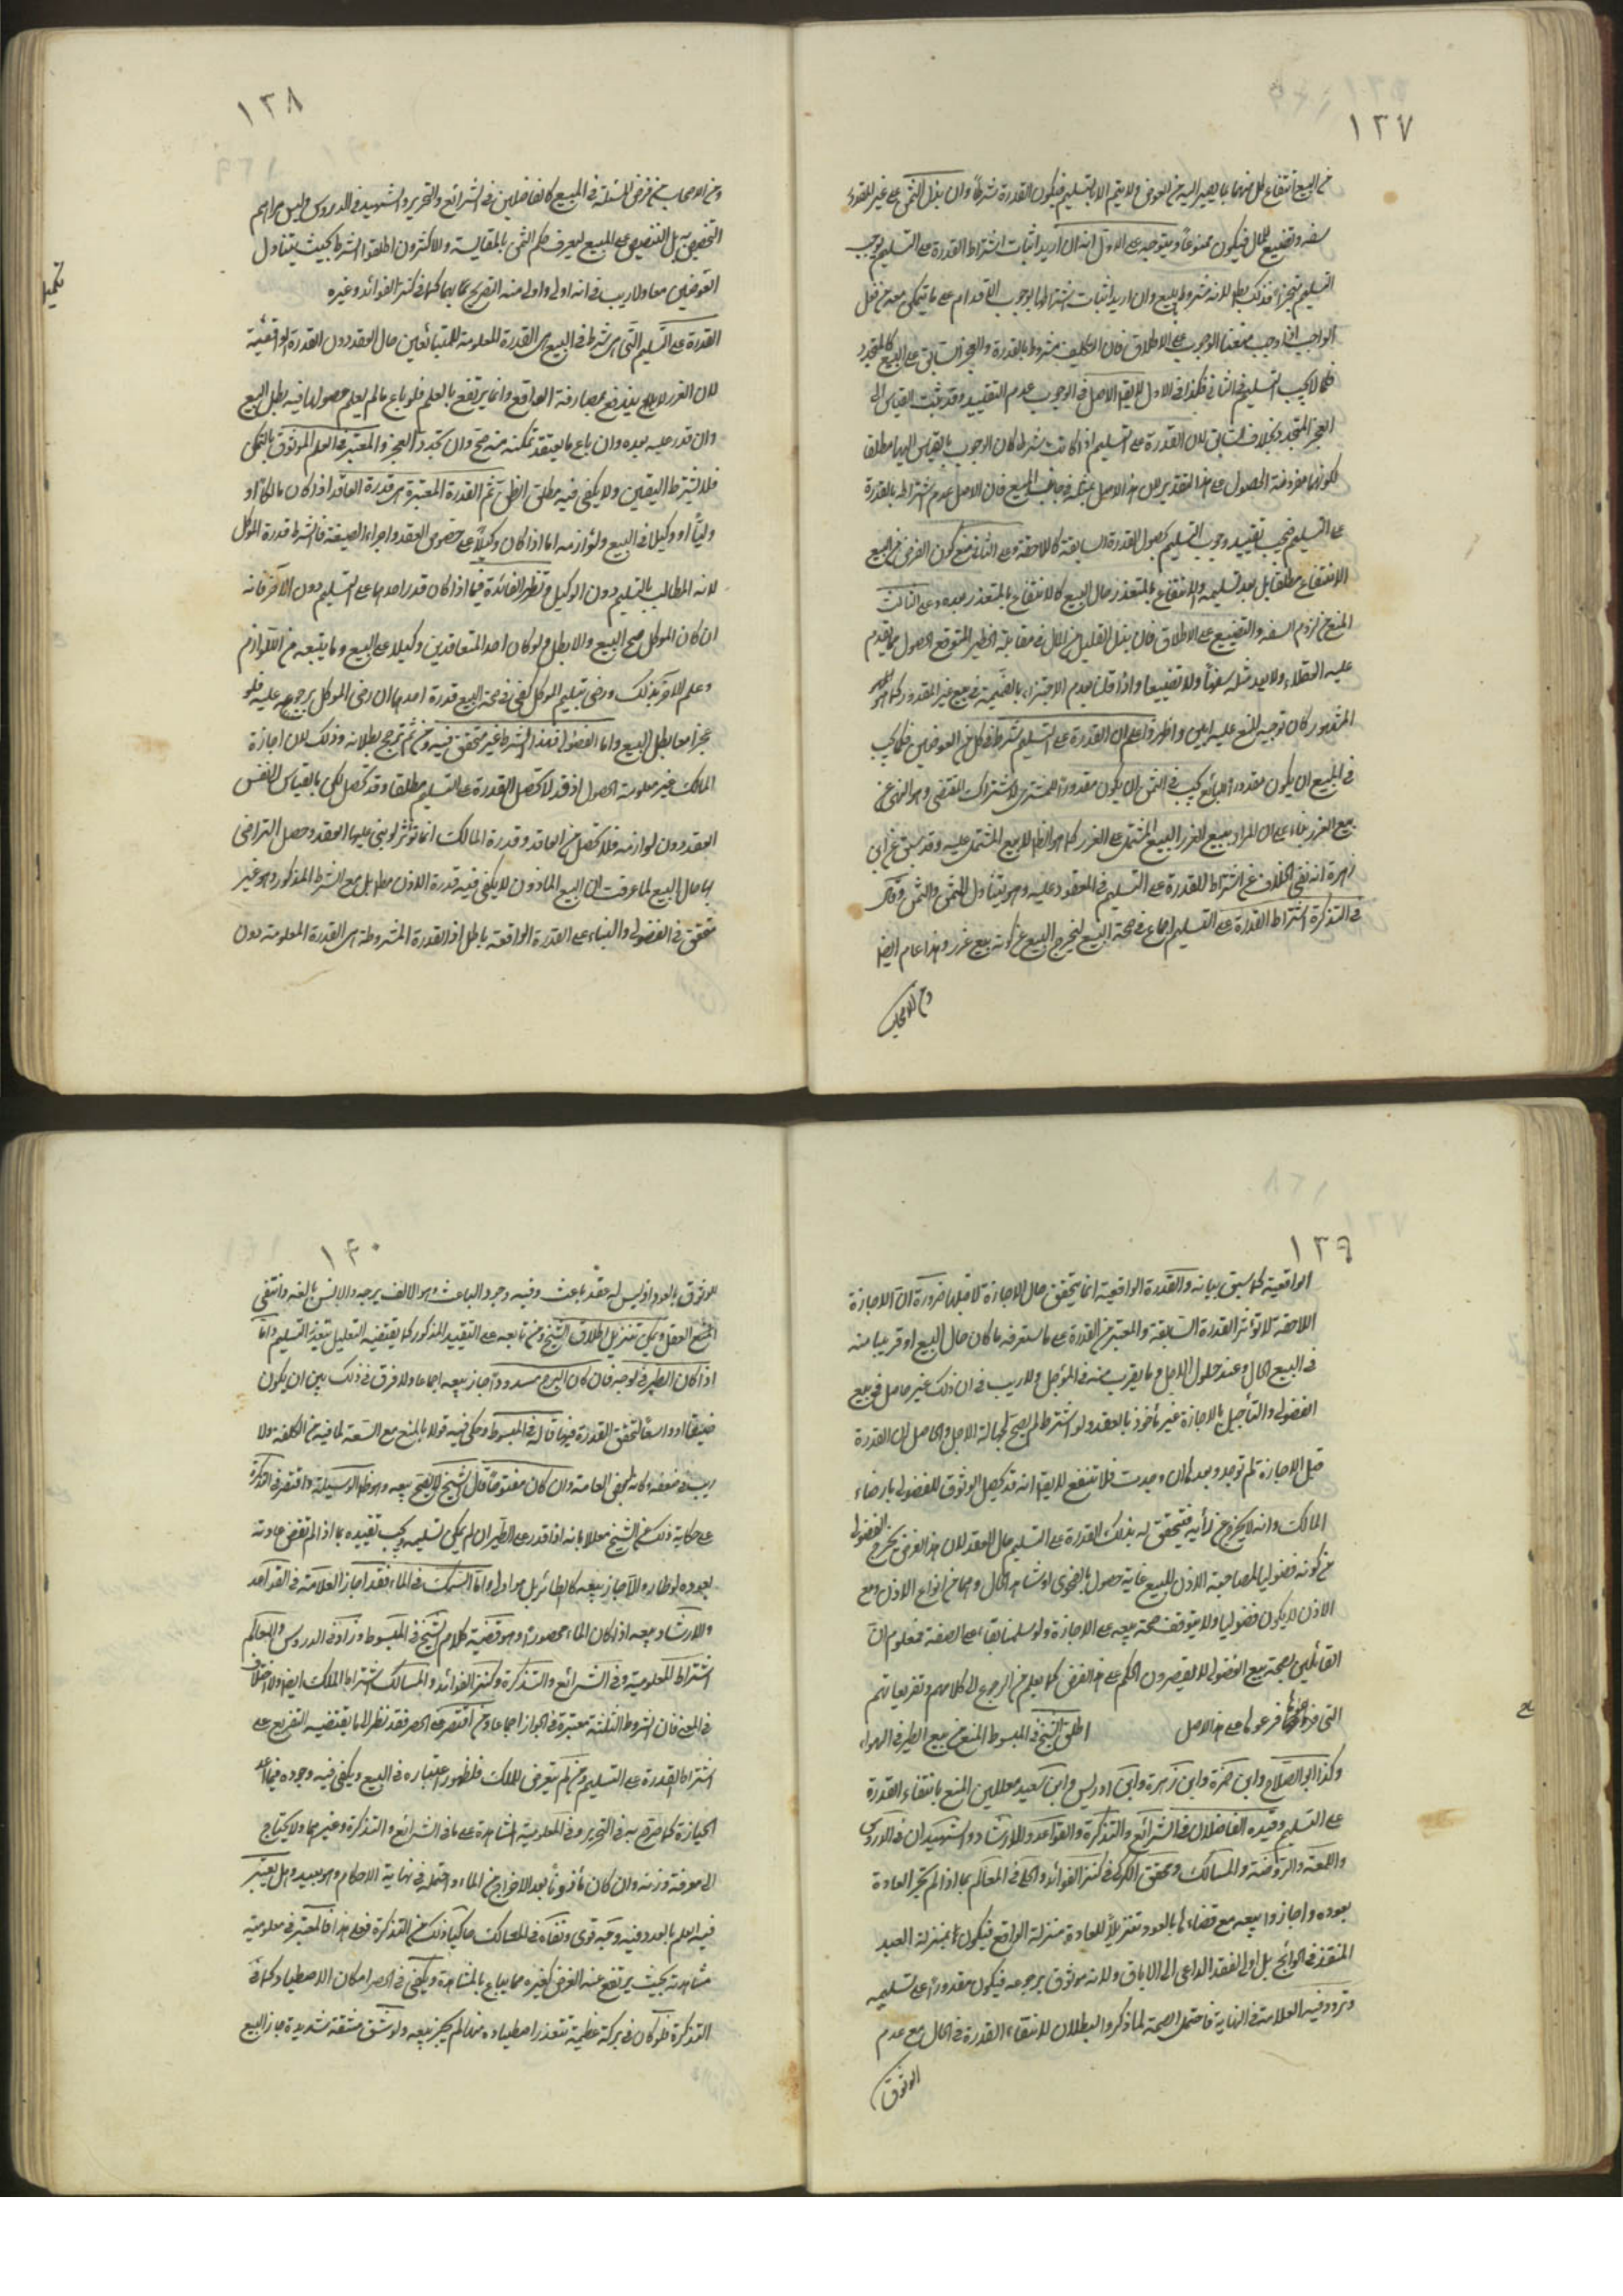 ١٣٧
من البيع انتفاع كل منهما بما يصير اليه من العوض ولا يتم الا بالتسليم فيكون القدرة شرطا وان بذل الثمن على غير المقدور
سفه وتضييع للمال فيكون ممنوعا ويتوجه على الاول انه ان اريد اثبات اشتراط القدرة على التسليم بوجوب
التسليم تنجزا فذلك باطل لانه مشروط بالبيع وان اريد اثبات اشتراطها بوجوب الاقدام على ما يتمكن معه من فعل
الواجب اذا وجب منعنا الوجوب على الاطلاق فان التكليف مشروط بالقدرة والعجز السابق على البيع كالمتجدد
فكما لا يجب التسليم في الثاني فكذا في الاول لا يقال الاصل في الوجوب عدم التقييد وقد ثبت بالقياس الى
العجز المتجدد بخلاف السابق لان القدرة على التسليم اذا كانت شرطا كان الوجوب بالقياس اليها مطلقا
لكونها مفروضة الحصول على هذا التقدير لان هذا الاصل بمثله في جانب البيع فان الاصل عدم اشتراطه بالقدرة
على التسليم فيجب تقييد وجوب التسليم بحصول القدرة السابقة كاللاحقة وعلى الثاني منع كون الغرض من البيع
الانتفاع مطلقا بل بعد تسليمه والانتفاع بالمتعذر حال البيع كالانتفاع بالمتعذر بعده وعلى الثالث
المنع من لزوم السفه والتضييع على الاطلاق فان بذل القليل من المال في مقابلة الخطير المتوقع الحصول مما يقدم
عليه العقلاء ولا يعد مثله سفها ولا تضييعا واذا قلنا بعدم الاجتزاء بالضميمة في بيع غير المقدور كما هو
المشهور كان توجيه المنع عليه ابين واظهر واعلم ان القدرة على التسليم شرط في كل من العوضين فكما يجب
في المبيع ان يكون مقدورا للبائع يجب في الثمن ان يكون مقدورا للمشتري لاشتراك المقتضي وهو النهي عن
بيع الغرر بناء على ان المراد ببيع الغرر البيع المشتمل على الغرر كما هو الظاهر لا بيع المشتمل عليه وقد سبق عن ابن
زهرة انه نفى الخلاف عن اشتراط القدرة على التسليم في المعقود عليه وهو يتناول المثمن والثمن وقال
في التذكرة اشتراط القدرة على التسليم اجماع في صحة البيع ليخرج البيع عن كونه بيع غرر وهذا عام ايضا
ومن الاصحاب
١٣٨
ومن الاصحاب من فرض المسئلة في المبيع كالفاضلين في الشرائع والتحرير والشهيد في الدروس وليس مرادهم
التخصيص به بل التنصيص على المبيع ليعرف حكم الثمن بالمقايسة والاكثرون اطلقوا الشرط بحيث يتناول
العوضين معا ولا ريب في انه اولى واولى منه التصريح بهما كما في كنز الفوائد وغيره
تكميل
القدرة على التسليم التي هي شرط في البيع هي القدرة المعلومة للمتبائعين حال العقد دون القدرة الواقعية
لان الغرر لا يندفع بمصادفة الواقع وانما يرتفع بالعلم فلو باع ما لم يعلم حصولها فيه بطل البيع
وان قدر عليه بعده وان باع ما يعتقد تمكنه منه صح وان تجدد العجز والمعتبر في العلم الموثوق بالتمكن
فلا يشترط اليقين ولا يكفي فيه مطلق الظن ثم القدرة المعتبرة هي قدرة العاقد اذا كان مالكا او
وليا او وكيلا في البيع ولوازمه اما اذا كان وكيلا على خصوص العقد واجراء الصيغة فالشرط قدرة الموكل
لانه المطالب بالتسليم دون الوكيل وتظهر الفائدة فيما اذا كان قدر احدهما على التسليم دون الآخر فانه
ان كان الموكل صح البيع والا بطل ولو كان احد المتعاقدين وكيلا على البيع وما يتبعه من اللوازم
وعلم الآخر بذلك ورضي بتسليم الموكل كفى في صحة البيع قدرة احدهما ان رضي الموكل برجوعه عليه فلو
عجزا معا بطل البيع واما الفضولي فهذا الشرط غير متحقق فيه ومن ثم ترجح بطلانه وذلك لان اجازة
المالك غير معلومة الحصول اذ قد لا تحصل القدرة على التسليم مطلقا وقد تحصل لكن بالقياس الى نفس
العقد دون لوازمه فلا تحصل من العاقد وقدرة المالك انما تؤثر لو بنى عليها العقد وحصل التراضي
بها حال البيع لما عرفت ان البيع الماذون لا يكفي فيه قدرة الاذن مطلقا بل مع الشرط المذكور وهو غير
متحقق في الفضولي والبناء على القدرة الواقعة باطل اذ القدرة المشروطة هي القدرة المعلومة دون
١٣٩
الواقعية كما سبق بيانه والقدرة الواقعية انما يتحقق حال الاجازة لا قبلها ضرورة ان الاجازة
اللاحقة لا تؤثر القدرة السابقة والمعتبر من القدرة على ما ستعرفه ما كان حال البيع او قريبا منه
في البيع الحال وعند حلول الاجل وما يقرب منه في المؤجل ولا ريب في ان ذلك غير حاصل في بيع
الفضولي والتأجيل بالاجازة غير مأخوذ بالعقد ولو اشترط لم يصح لجهالة الاجل والحاصل ان القدرة
قبل الاجازة لم توجد وبعدها ان وجدت فلا تنفع لا يقال انه قد يحصل الوثوق للفضولي بارضاء
المالك وانه لا يخرج عن رأيه فيتحقق له بذلك القدرة على التسليم حال العقد لان هذا الفرض يخرج الفضولي
من كونه فضوليا لمصاحبة الاذن للبيع غاية حصول بالفحوى او شاهد الحال وهما من انواع الاذن ومع
الاذن لا يكون فضوليا ولا يتوقف صحة بيعه على الاجازة ولو سلمنا بقاءه على الصفة فمعلوم ان
القائلين بصحة بيع الفضولي لا يقصرون الحكم على هذا الفرض كما يعلم من الرجوع الى كلامهم وتفريعاتهم
التي فرعوها على هذا الاصل اطلق الشيخ في المبسوط المنع من بيع الطير في الهواء
وكذا ابو الصلاح وابن حمزة وابن زهرة وابن ادريس وابن سعيد معللين المنع بانتفاء القدرة
على التسليم وقيده الفاضلان في الشرائع والتذكرة والقواعد والارشاد والشهيدان في الدروس
واللمعة والروضة والمسالك والمحقق الكركي في كنز الفوائد والحلي في المعالم بما اذا لم تجر العادة
بعوده واجازوا بيعه مع قضائها بالعود تنزيلا للعادة منزلة الواقع فيكون بمنزلة العبد
المنفذ في الحوائج بل اولى لفقد الداعي الى الاباق ولانه موثوق برجوعه فيكون مقدورا على تسليمه
وتردد فيه العلامة في النهاية فاحتمل الصحة لما ذكر والبطلان لانتفاء القدرة في الحال مع عدم
الوثوق
١٤٠
الوثوق بالعود اذ ليس له عقل باعث وفيه وجود الباعث وهو الالف يرجه والانس بالفه وانتفى
المنع العقل ويمكن تنزيل اطلاق الشيخ ومن تابعه على التقييد المذكور كما يقتضيه التعليل بتعذر التسليم واما
اذا كان الطير في البرج فان كان البرج مسدودا جاز بيعه اجماعا ولا فرق في ذلك بين ان يكون
ضيقا او واسعا لتحقق القدرة فيهما قاله في المبسوط وحكى فيه قولا بالمنع مع السعة لما فيه من الكلفة ولا
ريب في ضعفه وكانه لبعض العامة وان كان مفتوحا قال الشيخ لا يصح بيعه وهو ظاهر الوسيلة واقتصر في التذكرة
على حكاية ذلك عن الشيخ معللا بانه اذا قدر على الطيران لم يمكن تسليمه ويجب تقييده بما اذا لم تقض عادته
بعوده لو طار والا جاز بيعه كالطائر بل هو اولى واما السمك في الماء فقد اجاز العلامة في القواعد
والارشاد بيعه اذا كان الماء محصورا وهو قضية كلام الشيخ في المبسوط وزاد في الدروس والمعالم
اشتراط المعلومية وفي الشرائع والتذكرة وكنز الفوائد والمسالك اشتراط الملك ايضا ولا اختلاف
في المعنى فان الشروط الثلثة معتبرة في الجواز اجماعا ومن اقتصر على الحصر فقد نظر الى ما يقتضيه التفريع على
اشتراط القدرة على التسليم ومن لم يتعرض للملك فلظهور اعتباره في البيع ويكفي فيه وجوده فيما اعد
للحيازة كما صرح به في التحرير وفي المعلومية المشاهدة على ما في الشرائع والتذكرة وغيرهما ولا يحتاج
الى معرفة وزنه وان كان مأخوذا بعد الاخراج من الماء واحتمله في نهاية الاحكام وهو بعيد وهل يعتبر
فيه العلم بالعدد فيه وجه قوي ونفاه في المسالك حاكيا ذلك عن التذكرة فعلى هذا فالمعتبر في معلوميته
مشاهدته بحيث يرتفع عنه الغرر كغيره مما يباع بالمشاهدة ويكفي في الحصر امكان الاصطياد كما في
التذكرة فلو كان في بركة عظيمة يتعذر اصطياده منها لم يجز بيعه ولو شق مشقة شديدة جاز البيع